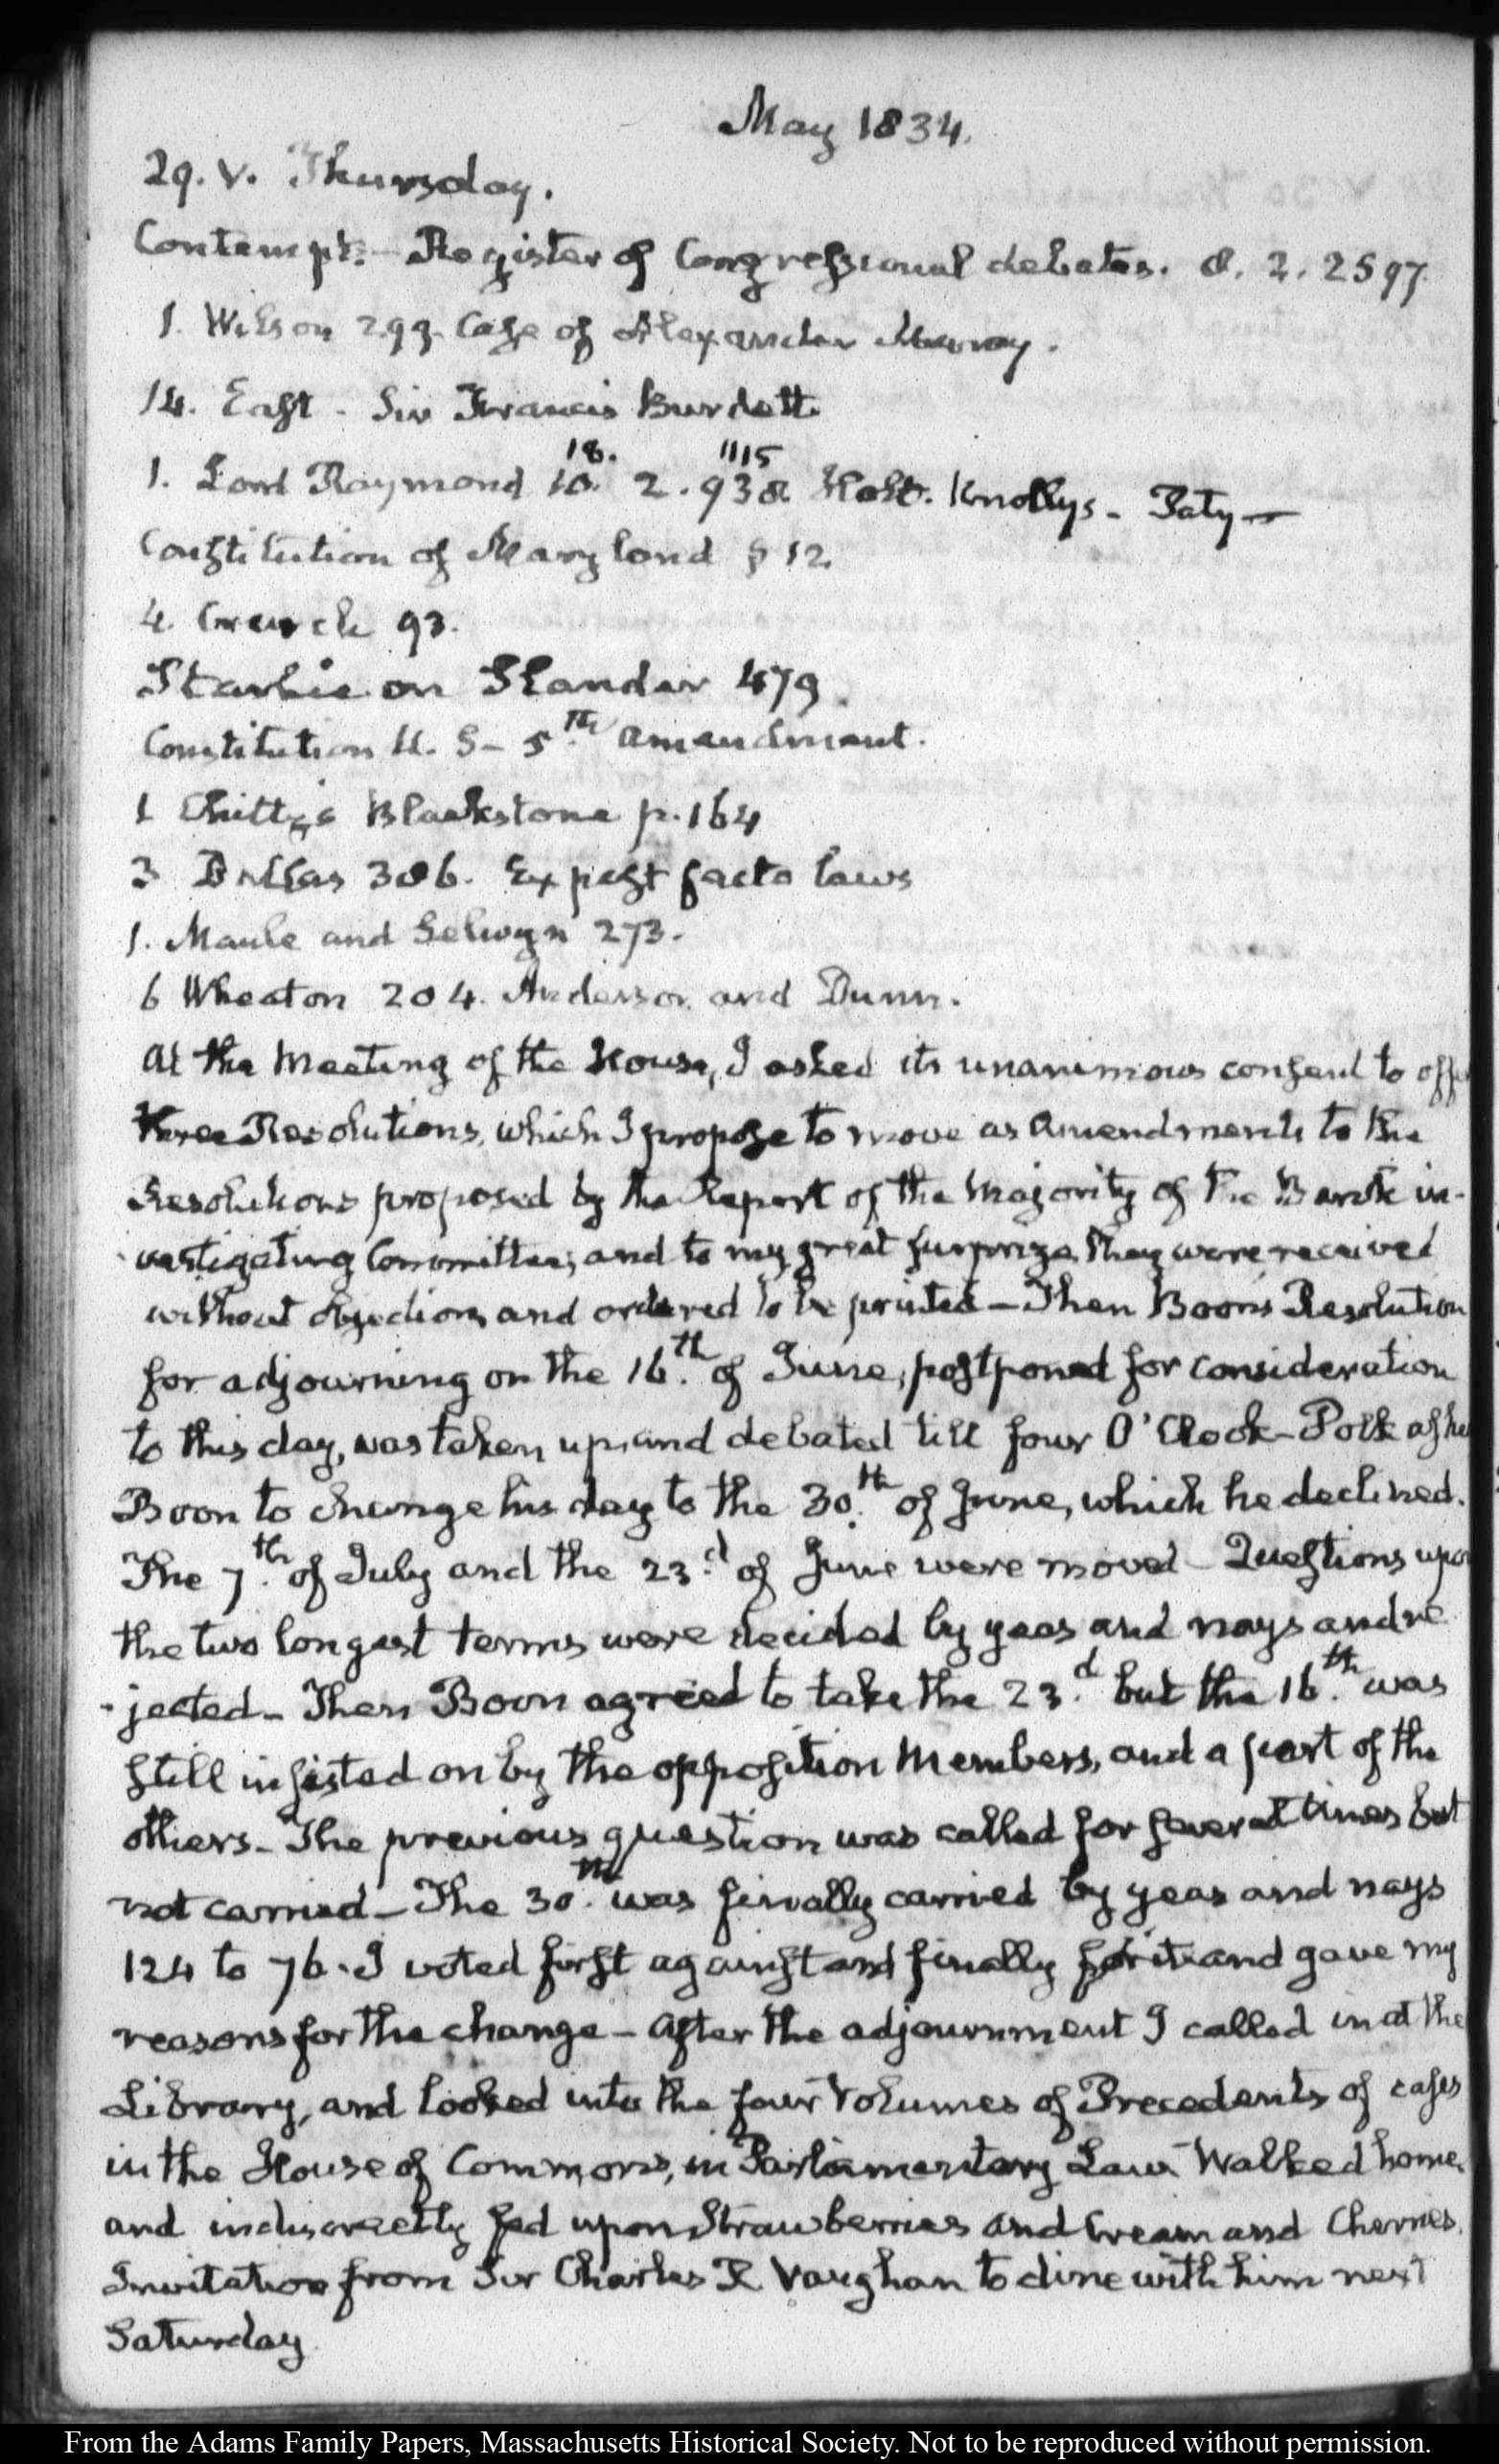 May 1834.
29. V. Thursday.
Contempt.– Register of Congressional debates. 8. 2. 2597.
1. Wilson 299. Case of Alexander Murray.
14. East – Sir Francis Burdett.
18. 1115
1. Lord Raymond 10. 2. 938 Holt. Knollys – Paty —
Constitution of Maryland § 12.
4. Cranch 93.
Starkie on Slander 479.
Constitution U. S – 5.th Amendment.
1 Chitty's Blackstone p. 164
3 Dallas 386. Ex post facto laws
1. Maule and Selwyn 273.
6 Wheaton 204. Anderson and Dunn.
At the Meeting of the House, I asked its unanimous consent to offer
three Resolutions, which I propose to move as Amendments to the
Resolutions proposed by the Report of the Majority of the Bank in-
-vestigating Committee; and to my great surprize they were received
without objection, and ordered to be printed – Then Boon's Resolution
for adjourning on the 16.th of June, postponed for consideration
to this day, was taken up, and debated till four O'Clock – Polk asked
Boon to change his day to the 30.th of June, which he declined.
The 7.th of July and the 23.d of June were moved – Questions upon
the two longest terms were decided by yeas and nays and re
-jected – Then Boon agreed to take the 23.d but the 16.th was
still insisted on by the opposition Members, and a part of the
others – The previous question was called for several times but
not carried – The 30.th was finally carried by yeas and nays
124 to 76. I voted first against and finally for it and gave my
reasons for the change – After the adjournment I called in at the
Library, and looked into the four Volumes of Precedents of cases
in the House of Commons, in Parliamentary Law – Walked home,
and indiscreetly fed upon Strawberries and Cream and Cherries.
Invitation from Sir Charles R Vaughan to dine with him next
Saturday
From the Adams Family Papers, Massachusetts Historical Society. Not to be reproduced without permission.